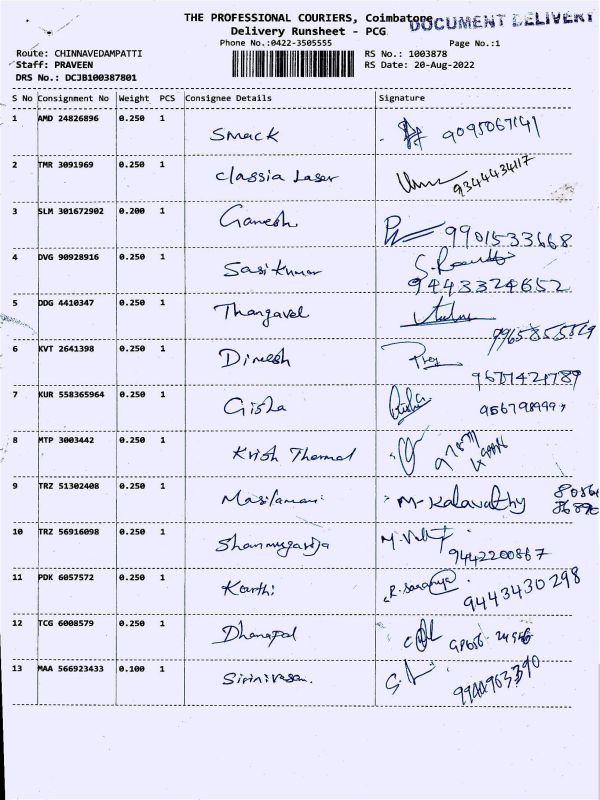 THE PROFESSIONAL COURIERS, Coimbatore
DOCUMENT DELIVERY
Delivery Runsheet - PCG
Phone No.:0422-3505555 Page No.:1
Route: CHINNAVEDAMPATTI RS No.: 1003878
Staff: PRAVEEN RS Date: 20-Aug-2022
DRS No.: DCJB100387801
S No Consignment No Weight PCS Consignee Details Signature
1 AMD 24826896 0.250 1 Smack 9095067141
2 TMR 3091969 0.250 1 Classia Laser 9344434117
3 SLM 301672902 0.200 1 Ganesh 9901533668
4 DVG 90928916 0.250 1 Sasikumar
9443324652
5 DDG 4410347 0.250 1 Thangavel
6 KVT 2641398 0.250 1 Dinesh
7 KUR 558365964 0.250 1 Gisha
8 MTP 3003442 0.250 1 Krish Thermal
9 TRZ 51302408 0.250 1 Masilamani M. Kalavathy
10 TRZ 56916098 0.250 1 Shanmugaraja
9442200867
11 PDK 6057572 0.250 1 Karthi R. Saranya 9443430298
12 TCG 6008579 0.250 1 Dhanapal
13 MAA 566923433 0.100 1 Sirinivasan.